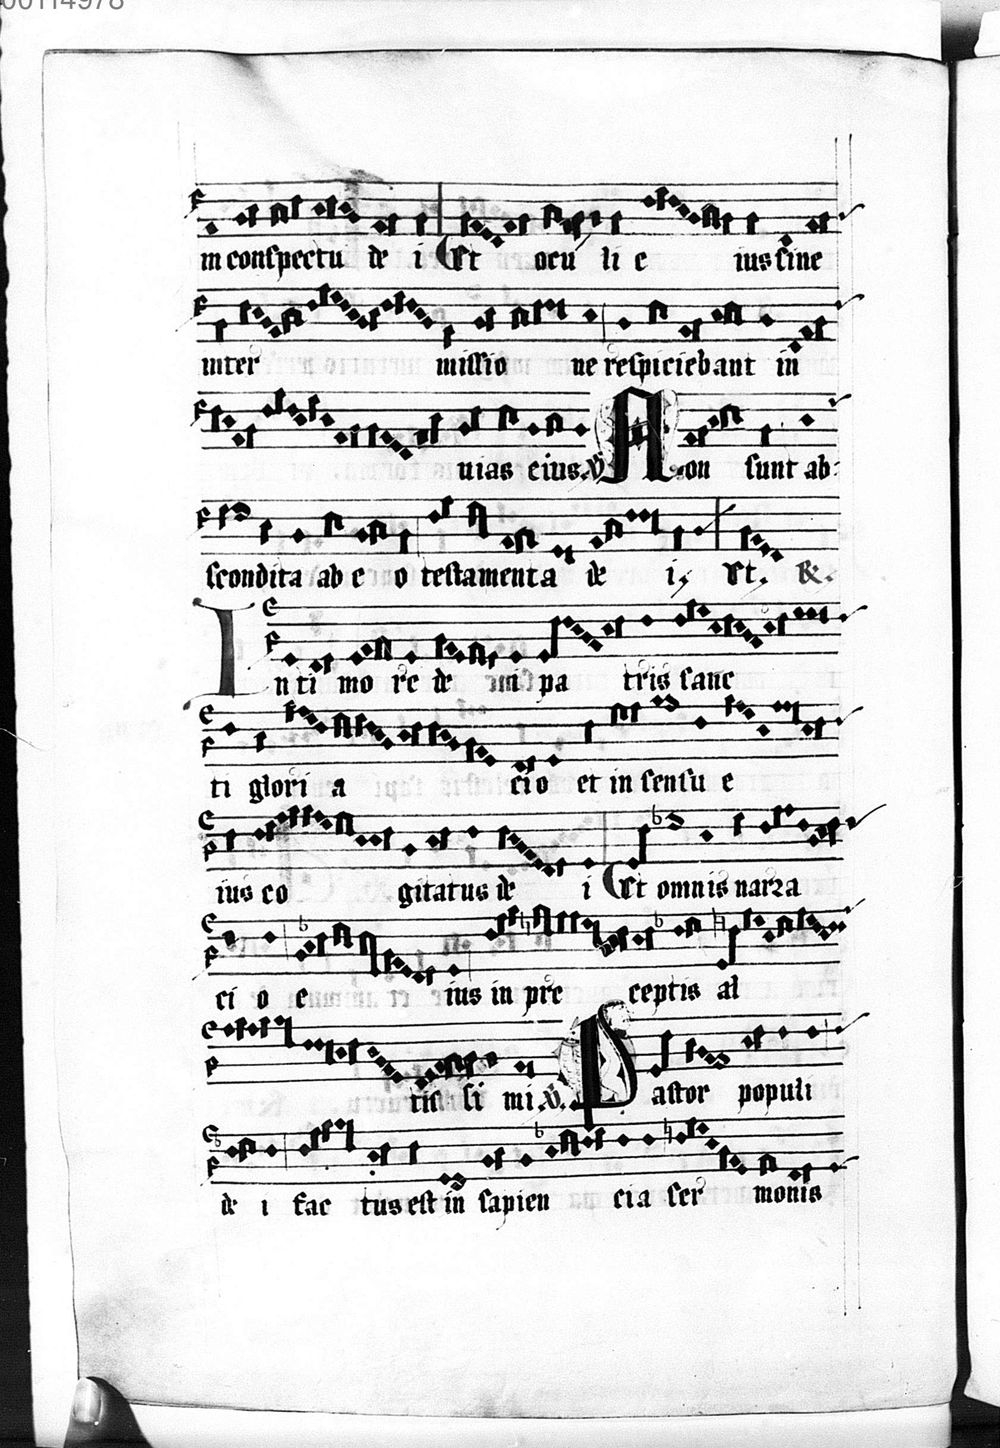 00114978
in conspectu de i Et ocu li e ius sine
inter missio ne respiciebant in
uias eius. V Non sunt ab
scondita ab e o testamenta de i. Et. &.
In ti mo re de mi pa tris sanc
ti glori a ci o et in sensu e
ius co gitatus de i Et omnis narra
ci o e ius in pre ceptis al
tis si mi. V. Pastor populi
de i fac tus est in sapien cia ser monis